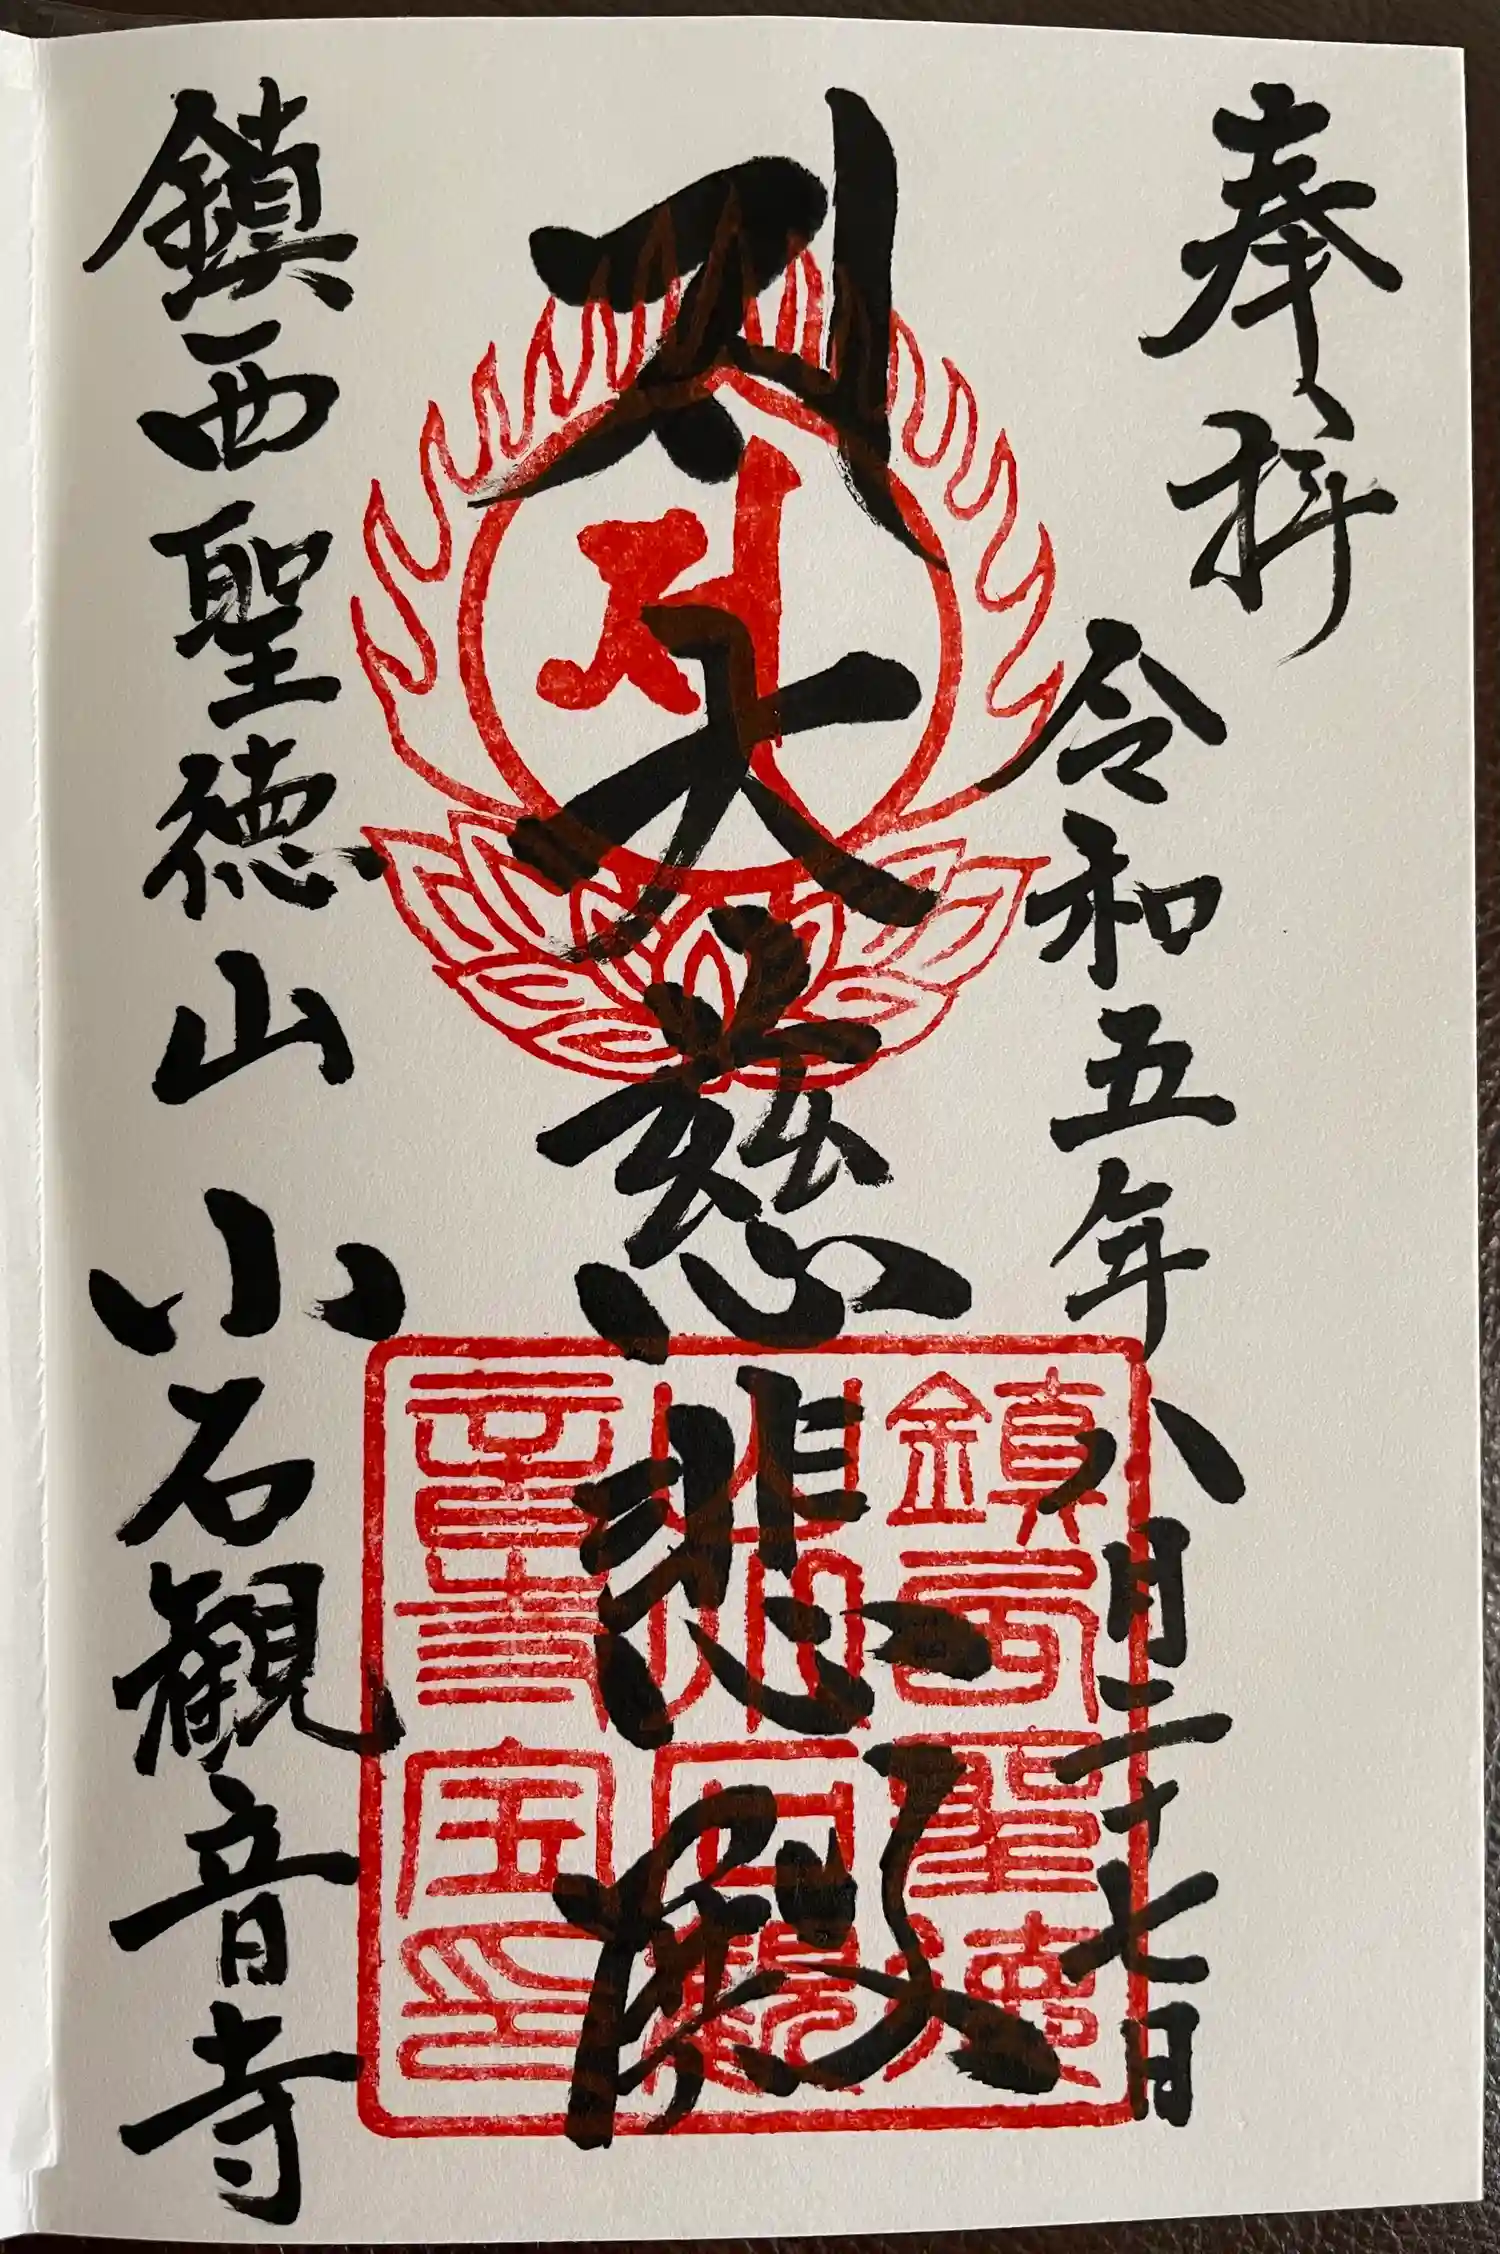 奉拝
令和五年八月二十七日
大慈悲殿
鎮西聖徳山 小石観音寺
鎮西聖徳
山小石観
音寺宝印